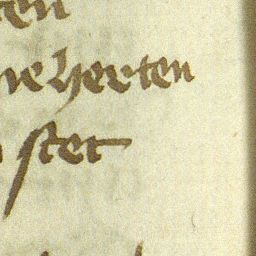 ten
ne herten
ster